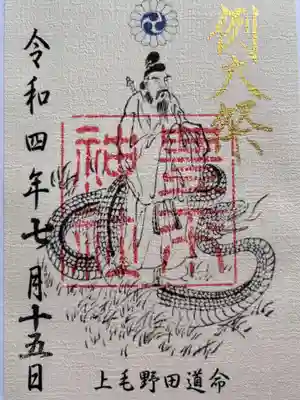 例大祭
神社
令和四年七月十五日
上毛野田道命